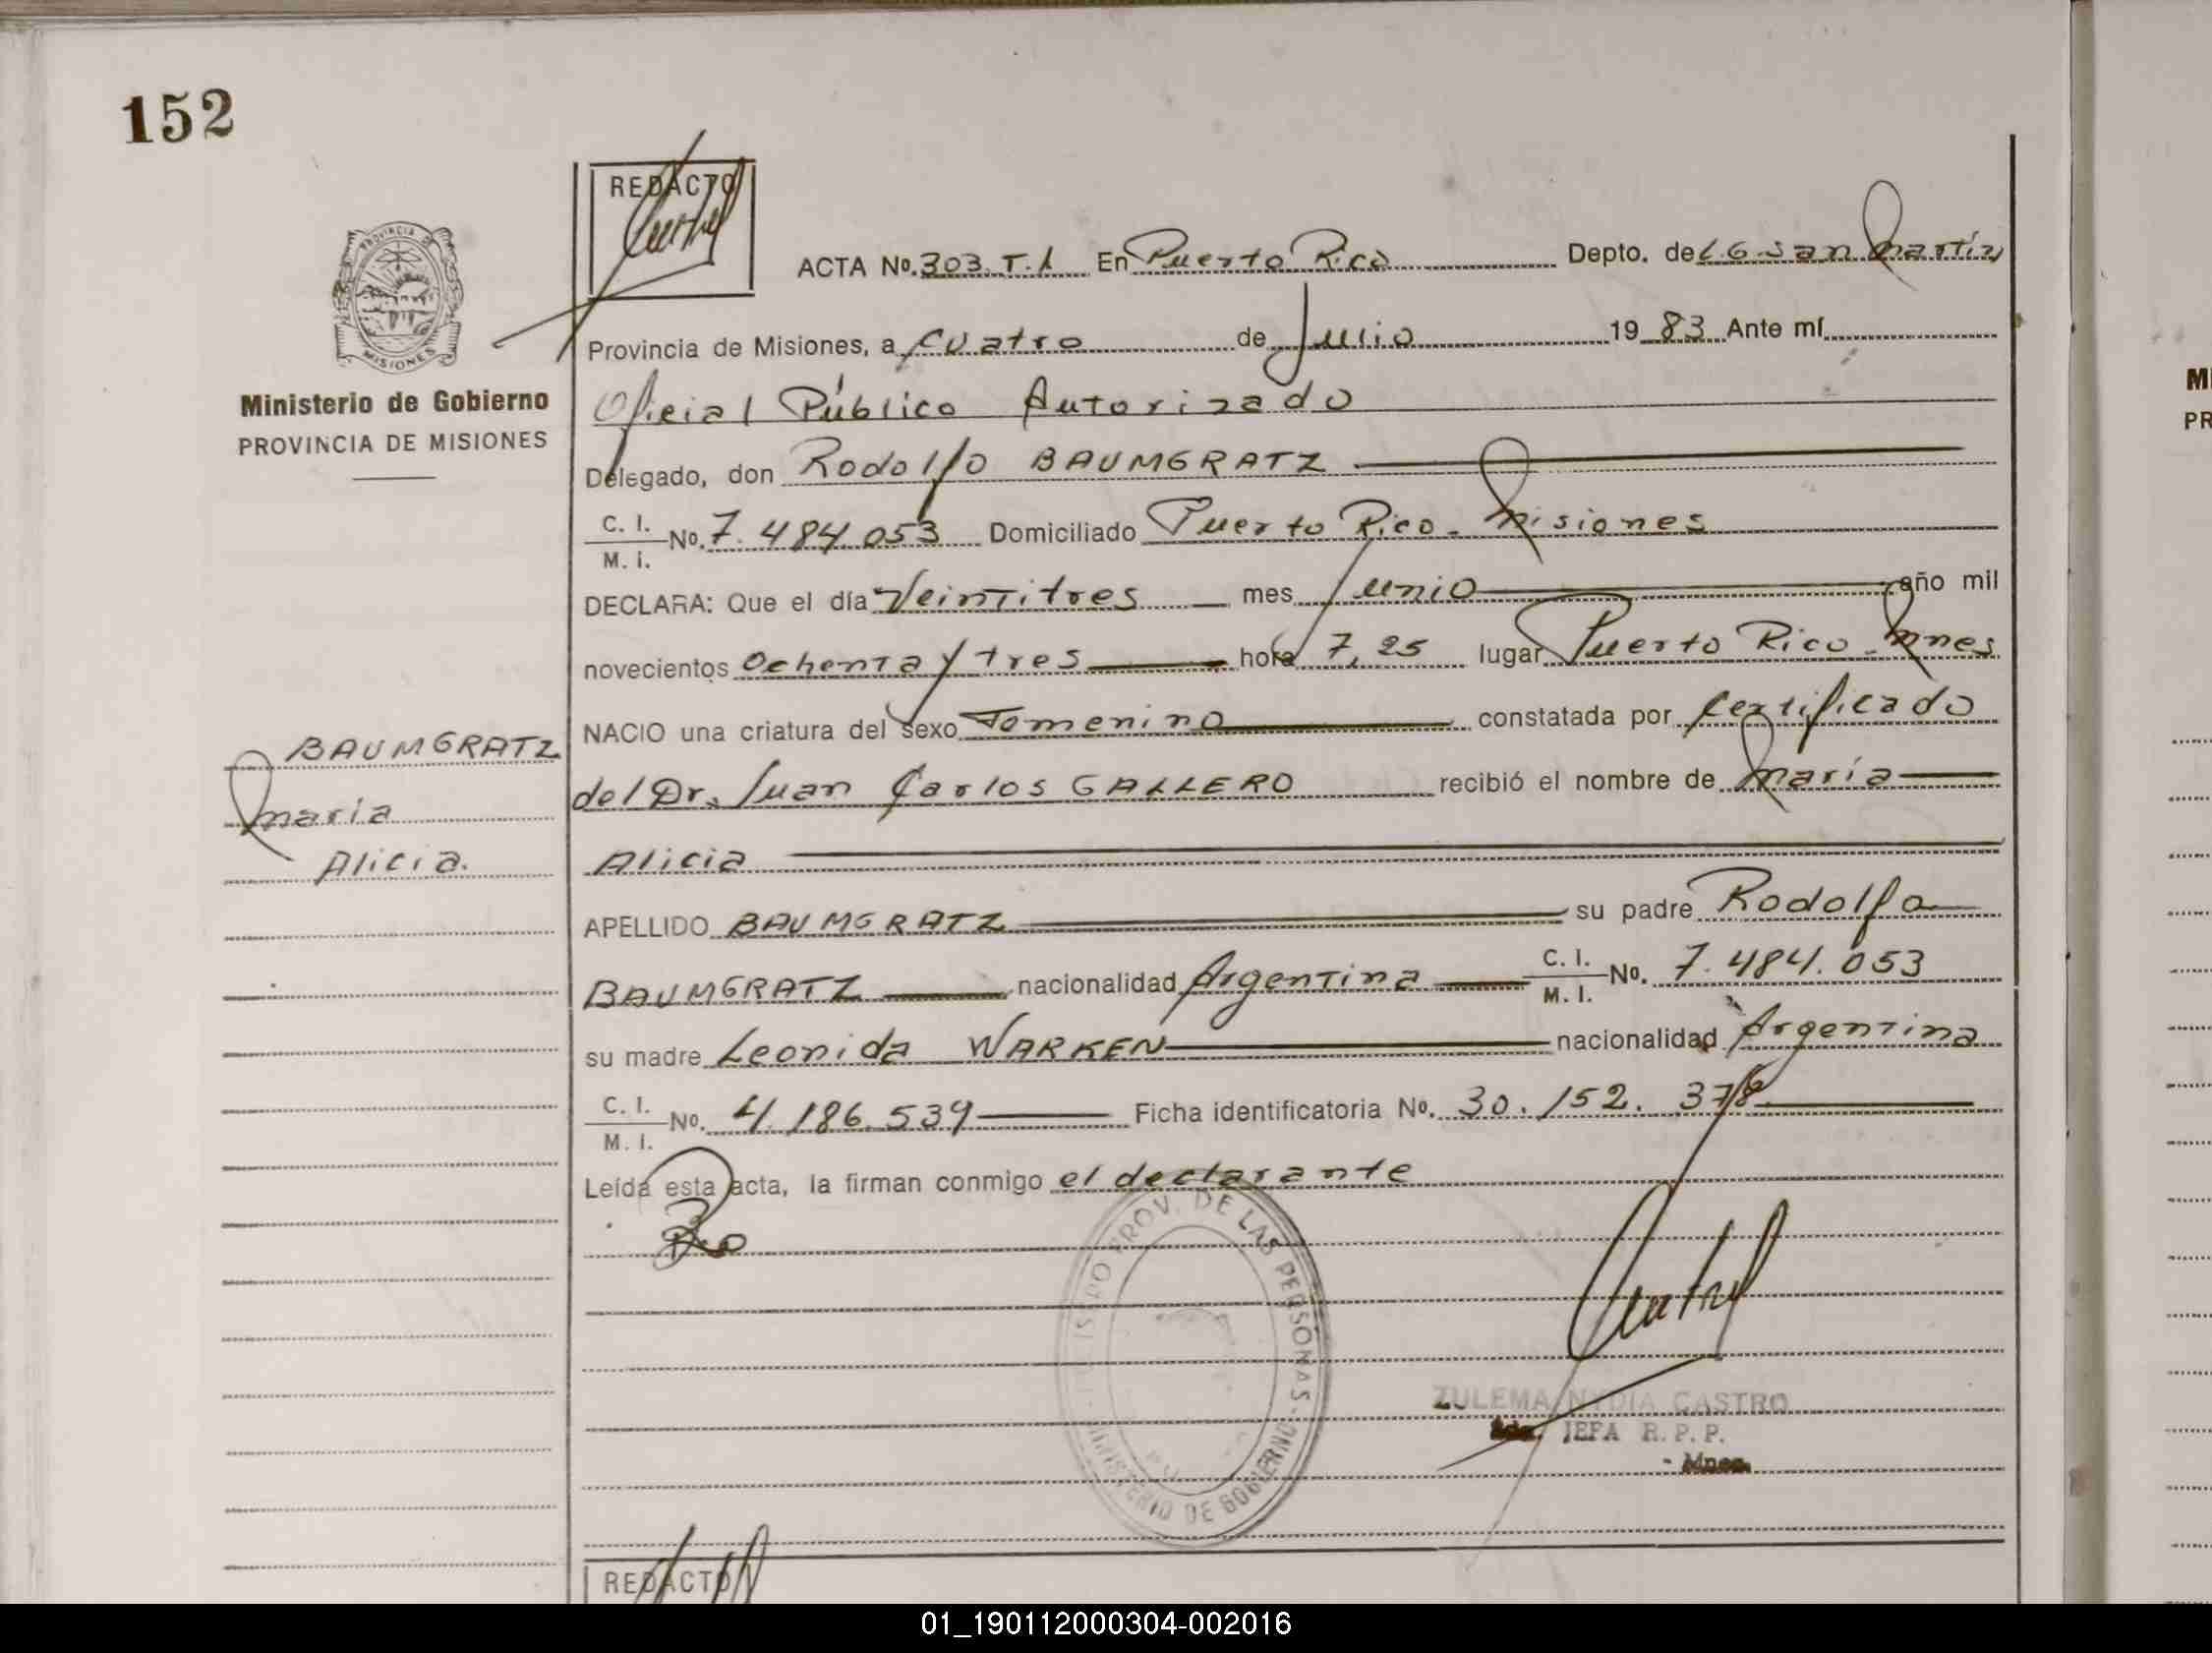 152
REDACTO
ACTA No. 303. T. 1 En Puerto Rico Depto. de L. G. San Martín
PROVINCIA DE
MISIONES
Provincia de Misiones, a Cuatro de Julio 1983 Ante mí
Ministerio de Gobierno
PROVINCIA DE MISIONES
Oficial Público Autorizado
Delegado, don Rodolfo BAUMGRATZ
C. I.
M. i. No. 7.484.053 Domiciliado Puerto Rico - Misiones
DECLARA: Que el día Veintitres mes Junio año mil
novecientos Ochenta y tres hora 7,25 lugar Puerto Rico - Mnes
NACIO una criatura del sexo Femenino constatada por Certificado
del Dr. Juan Carlos GALLERO recibió el nombre de María
Alicia
BAUMGRATZ
María
Alicia.
APELLIDO BAUMGRATZ su padre Rodolfo
BAUMGRATZ nacionalidad Argentina C. I.
M. I. No. 7.484.053
su madre Leonida WARKEN nacionalidad Argentina
C. I.
M. I. No. 4.186.539 Ficha identificatoria No. 30.152.378
Leída esta acta, la firman conmigo el declarante
PROV. DE LAS PERSONAS
MINISTERIO DE GOBIERNO
ZULEMA NYDIA CASTRO
JEFA R. P. P.
- Mnes.
REDACTO
M
PR
01_190112000304-002016